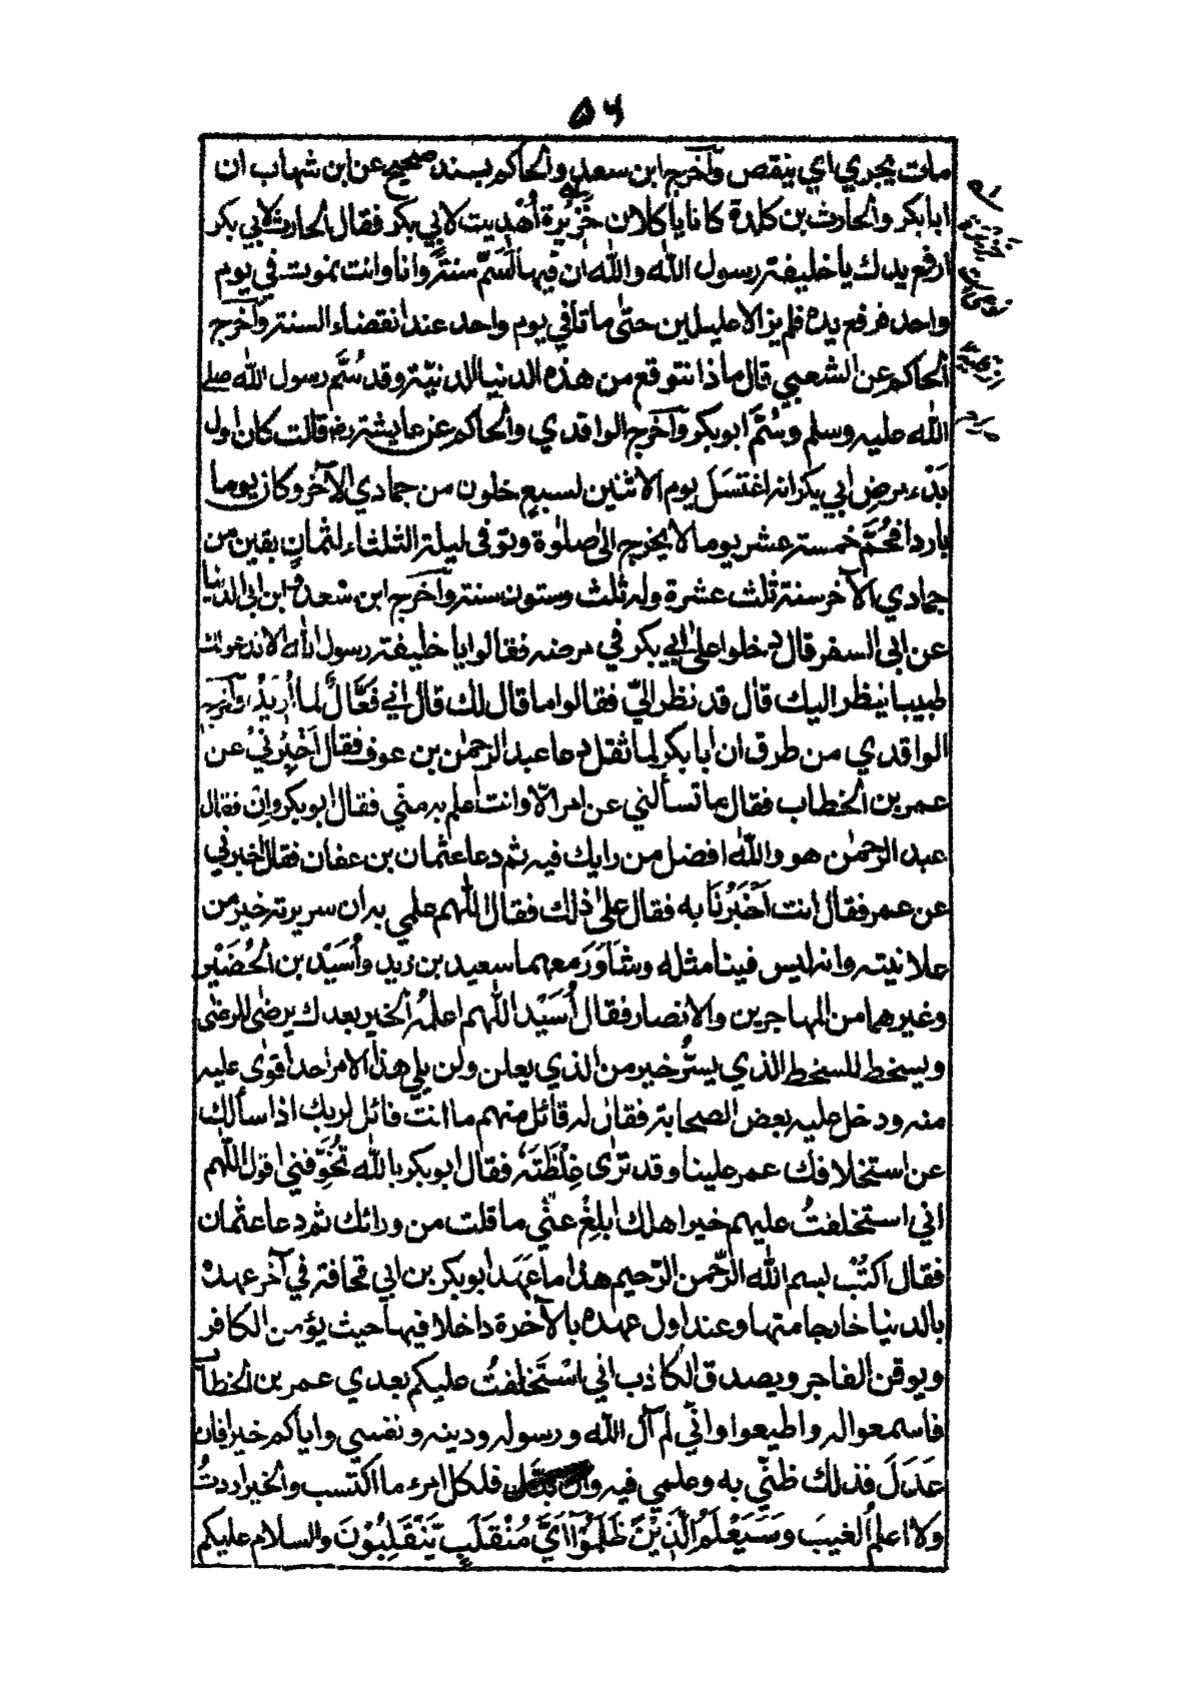 ٥٦
مات يجري اي ينقص وأخرج ابن سعد والحاكم بسند صحيح عن ابن شهاب ان
ابا بكر والحارث بن كلدة كانا ياكلان خزيرة أُهْدِيت لابي بكر فقال الحارث لابي بكر
ارفع يدك يا خليفة رسول الله والله ان فيها لسَمّ سنة وانا وانت نموت في يوم
واحد فرفع يده فلم يزالا عليلين حتى ماتا في يوم واحد عند انقضاء السنة وأخرج
الحاكم عن الشعبي قال ماذا نتوقع من هذه الدنيا الدنيّة وقد سُمَّ رسول الله صلى
الله عليه وسلم وسُمَّ ابو بكر وأخرج الواقدي والحاكم عن عايشة رض قالت كان اول
بَدْء مرض ابي بكر انه اغتسَل يوم الاثنين لسبعٍ خلون من جمادي الآخر وكان يوما
باردا فحُمَّ خمسة عشر يوما لا يخرج الى صلوة وتوفى ليلة الثلثاء لثمانٍ بقين من
جمادي الآخر سنة ثلث عشرة وله ثلث وستون سنة وأخرج ابن سعد وابن ابي الدنيا
عن ابي السفر قال دخلوا على ابي بكر في مرضه فقالوا يا خليفة رسول الله الا ندعو لك
طبيبا ينظر اليك قال قد نظر اليّ فقالوا ما قال لك قال اني فَعَّالٌ لما أُريدُ وأخرج
الواقدي من طرق ان ابا بكر لما ثقل دعا عبد الرحمٰن بن عوف فقال أخْبِرْني عن
عمر بن الخطاب فقال ما تسألني عن امر الّا وانت اعلم به منّي فقال ابو بكر وإن فقال
عبد الرحمٰن هو والله افضل من رايك فيه ثم دعا عثمان بن عفان فقال اخبرني
عن عمر فقال انت أخْبَرُنَا به فقال على ذلك فقال اللّٰهم علمي به ان سريرته خير من
علانيته وانه ليس فينا مثله وشاوَرَ معهما سعيد بن زيد وأُسَيْد بن الحُضَيْر
وغيرهما من المهاجرين والانصار فقال أُسَيْد اللّٰهم اعلمُه الخير بعدك يرضى للرضى
ويسخط للسخط الذي يسرُّ خير من الذي يعلن ولن يلي هذا الامر احد أقوى عليه
منه ودخل عليه بعض الصحابة فقال له قائل منهم ما انت قائل لربك اذا سألك
عن استخلافك عمر علينا وقد ترى غِلْظَتَه فقال ابو بكر بالله تخُوّفني اقول اللّٰهم
اني استخلفتُ عليهم خير اهلك ابلِغْ عنّي ما قلت من ورائك ثم دعا عثمان
فقال اكتُبْ بسم الله الرّحمن الرّحيم هذا ما عَهِدَ ابو بكر بن ابي قحافة في آخر عهده
بالدنيا خارجا منها وعند اول عهده بالآخرة داخلا فيها حيث يؤمن الكافر
ويوقن الفاجر ويصدق الكاذب اني اسْتَخلفتُ عليكم بعدي عمر بن الخطاب
فاسمعوا له واطيعوا وانّي لم آل الله ورسوله ودينه ونفسي واياكم خيرا فان
عَدَلَ فذلك ظنّي به وعلمي فيه وان بدّل فلكل امرء ما اكتسب والخير اردتُ
ولا اعلم الغيبَ وَسَيَعْلَمُ الَّذِيْنَ ظَلَمُوْٓا اَيَّ مُنْقَلَبٍ يَّنْقَلِبُوْنَ والسلام عليكم